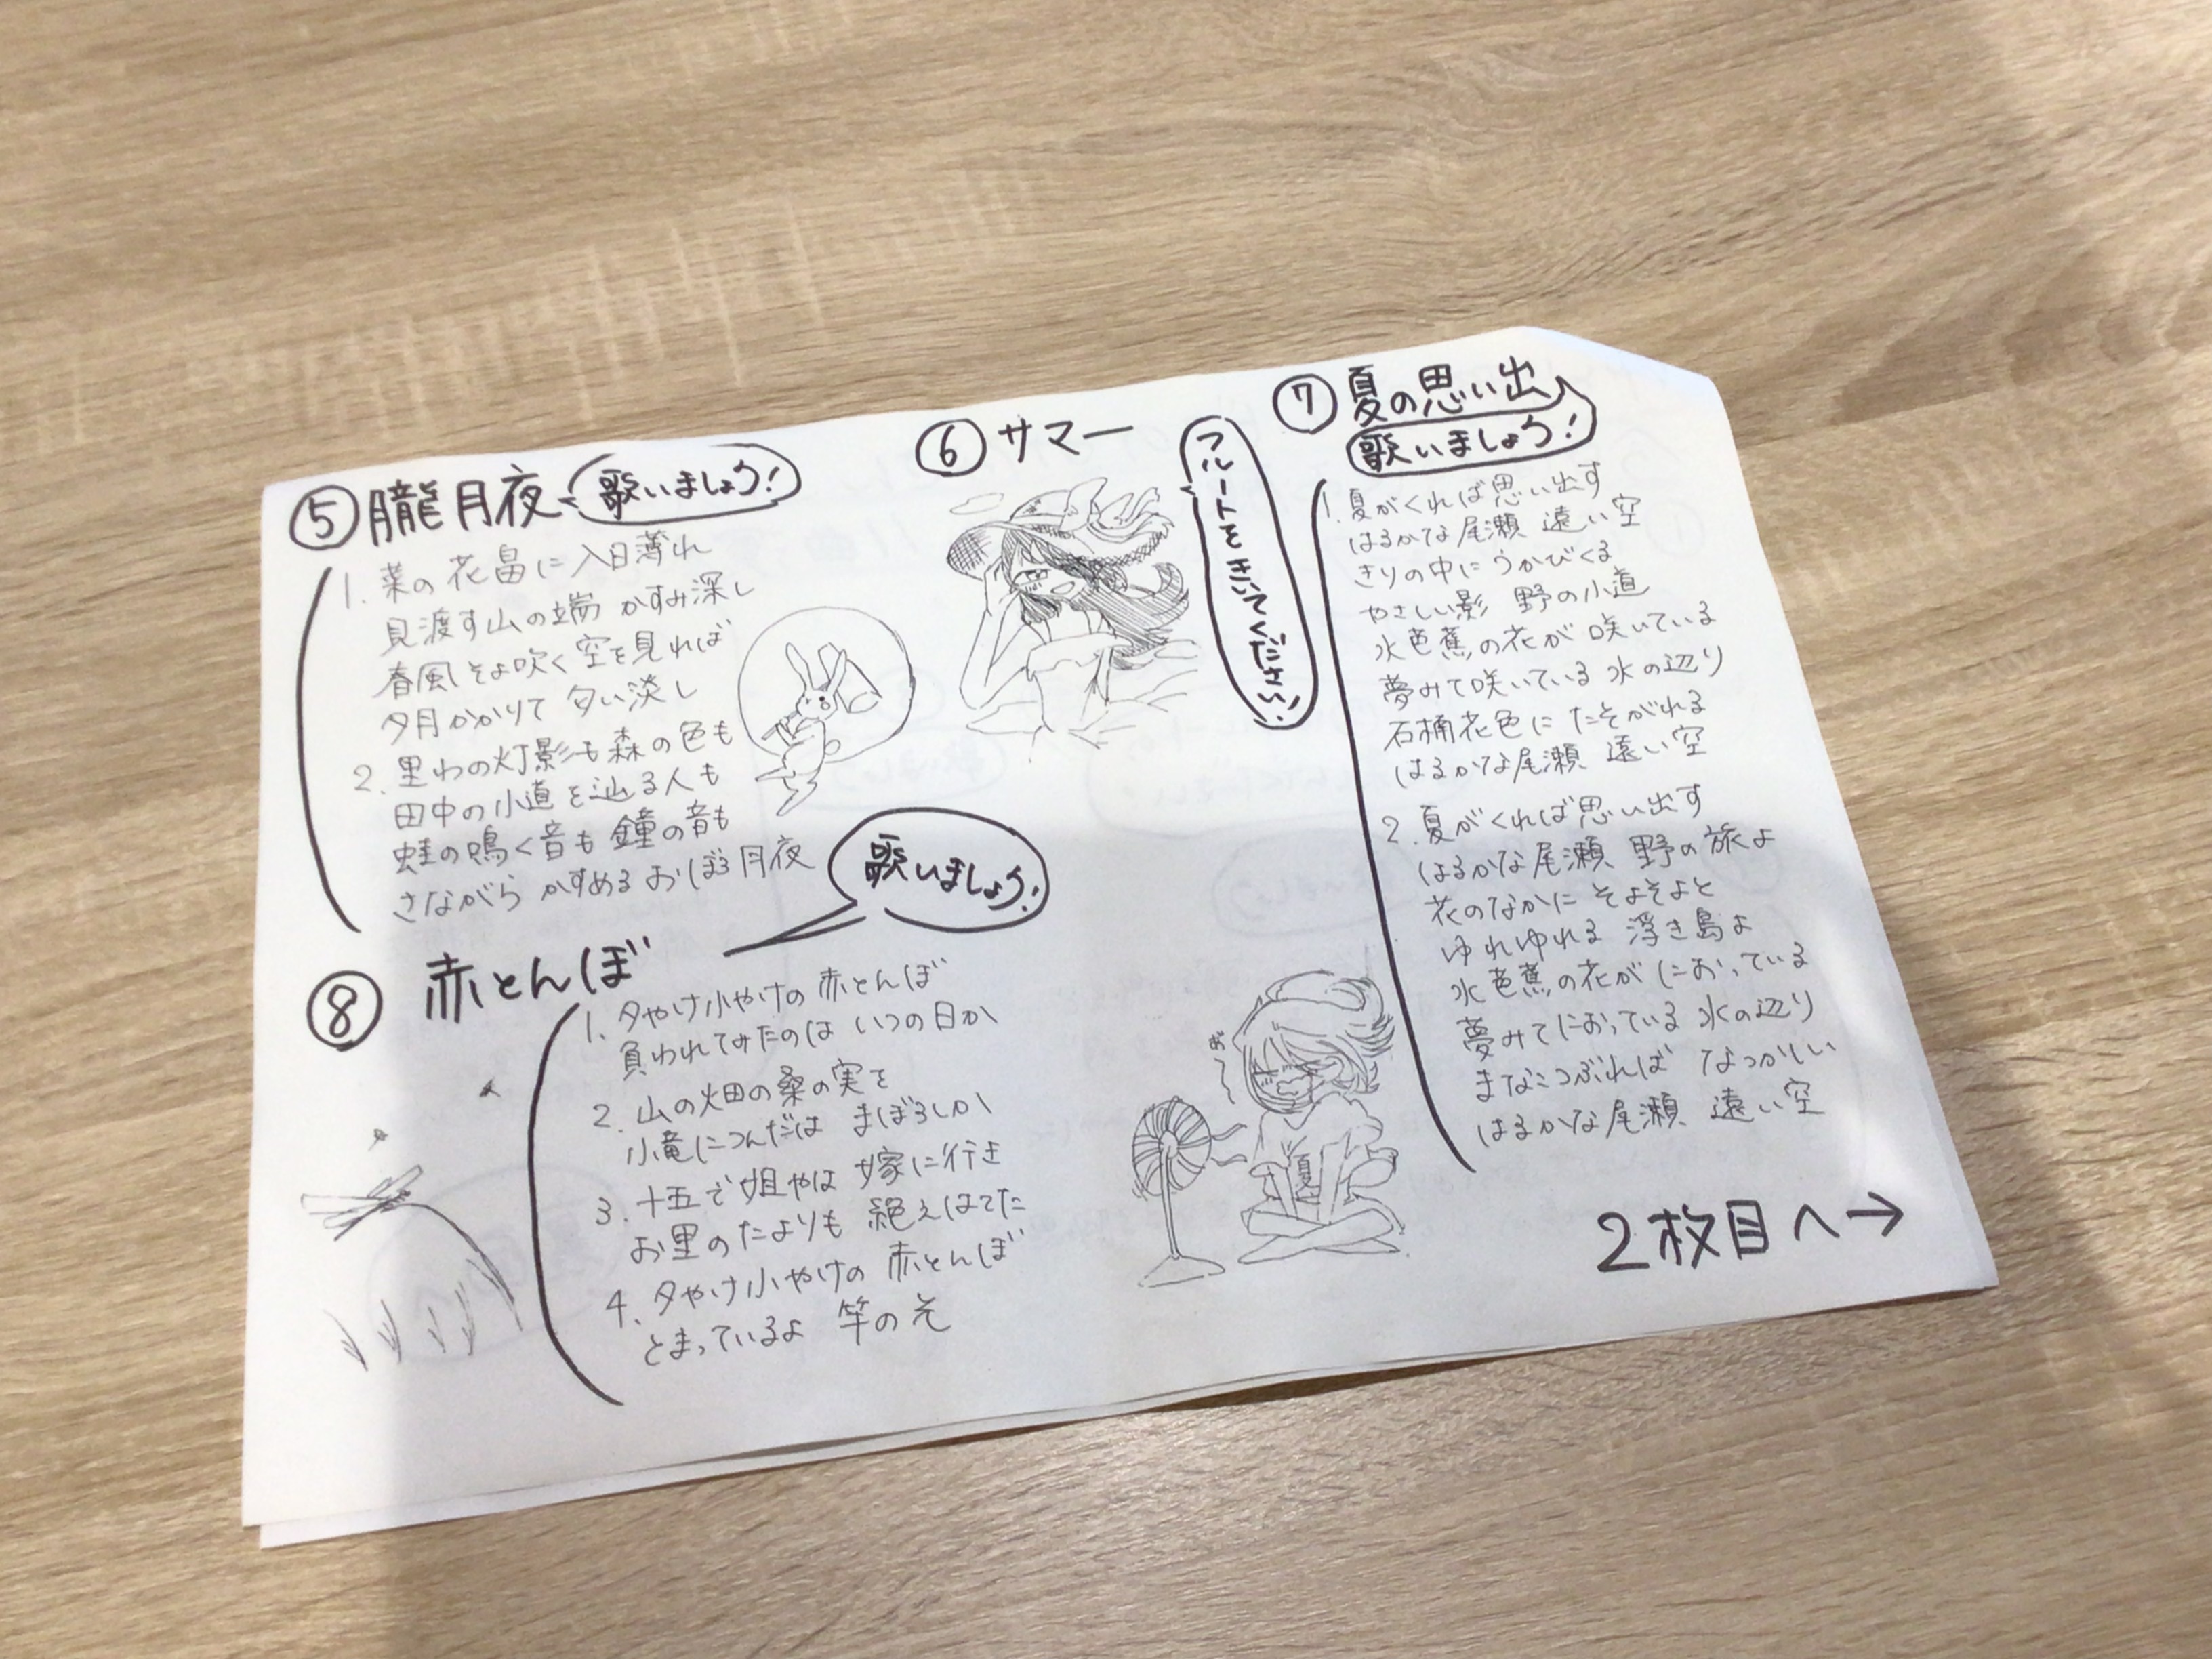 ⑤朧月夜
歌いましょう!
1. 菜の花畠に入日薄れ
見渡す山の端 かすみ深し
春風そよ吹く空を見れば
夕月かかりて 匂い淡し
2. 里わの灯影も森の色も
田中の小道を辿る人も
蛙の鳴く音も鐘の音も
さながら かすめる おぼろ月夜
⑥サマー
フルートをきいてください!
⑦夏の思い出
歌いましょう!
1. 夏がくれば思い出す
はるかな尾瀬 遠い空
きりの中に うかびくる
やさしい影 野の小道
水芭蕉の花が 咲いている
夢みて咲いている 水の辺り
石楠花色に たそがれる
はるかな尾瀬 遠い空
2. 夏がくれば思い出す
はるかな尾瀬 野の旅よ
花のなかに そよそよと
ゆれゆれる 浮き島よ
水芭蕉の花が におっている
夢みてにおっている 水の辺り
まなこつぶれば なつかしい
はるかな尾瀬 遠い空
⑧ 赤とんぼ
歌いましょう!
1. 夕やけ小やけの 赤とんぼ
負われてみたのは いつの日か
2. 山の畑の桑の実を
小竜につんだは まぼろしか
3. 十五で姐やは 嫁に行き
お里のたよりも 絶えはてた
4. 夕やけ小やけの 赤とんぼ
とまっているよ 竿の先
あ〜
夏
2枚目へ→